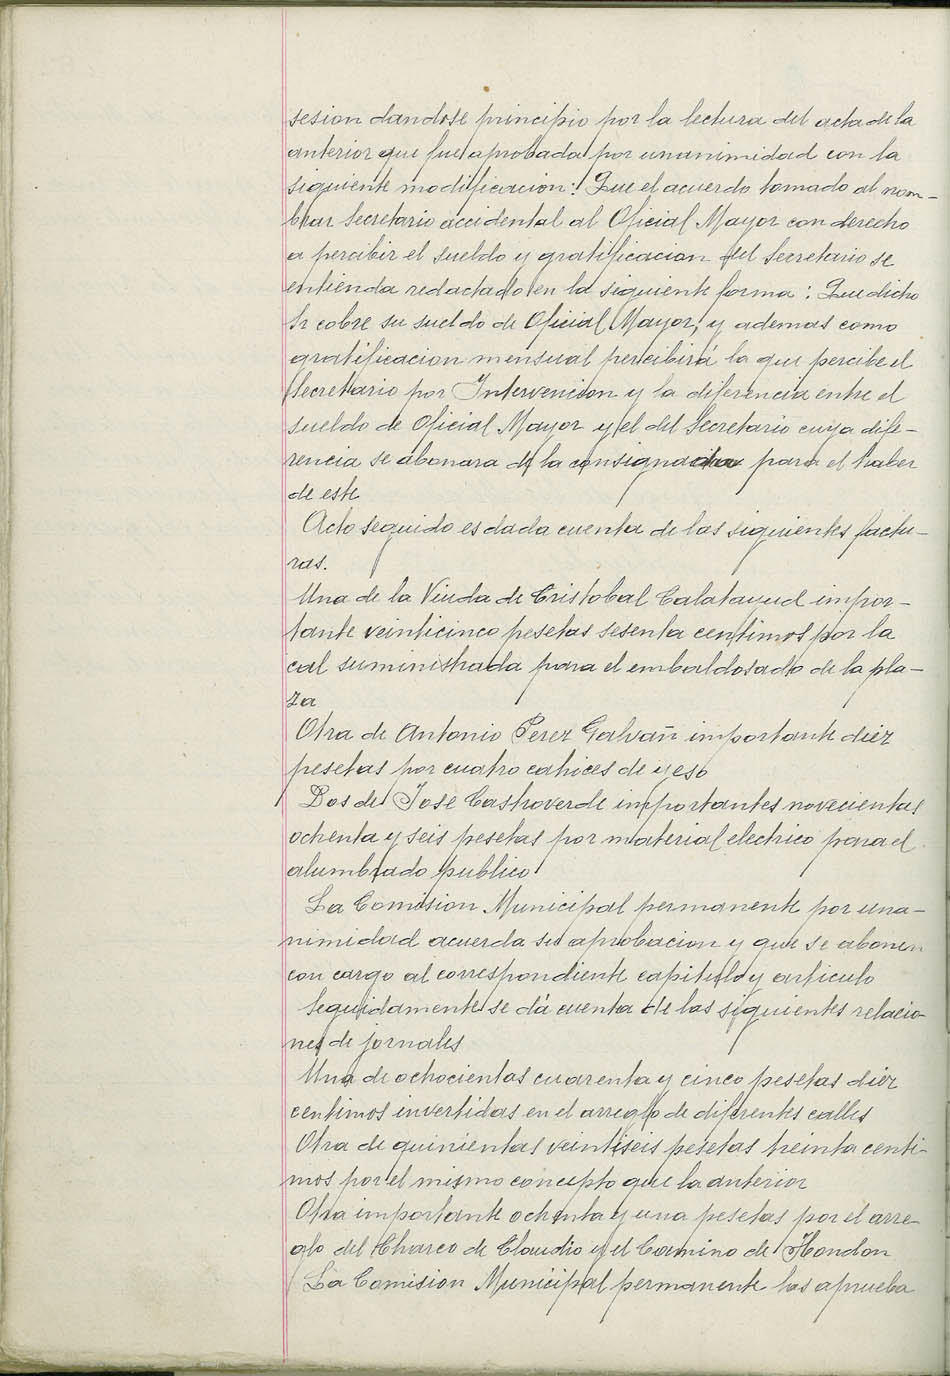 sesion dandose principio por la lectura del acta de la
anterior que fue aprobada por unanimidad con la
siguiente modificacion: Que el acuerdo tomado al nom-
brar Secretario accidental al Oficial Mayor con derecho
a percibir el sueldo y gratificacion del Secretario se
entienda redactado en la siguiente forma: Que dicho
Sr cobre su sueldo de Oficial Mayor, y ademas como
gratificacion mensual percibirá la que percibe el
Secretario por Intervencion y la diferencia entre el
sueldo de Oficial Mayor y el del Secretario cuya dife-
rencia se abonara de la consignada para el haber
de este
Acto seguido es dada cuenta de las siguientes factu-
ras.
Una de la Viuda de Cristobal Calatayud impor-
tante veinticinco pesetas sesenta centimos por la
cal suministrada para el embaldosado de la pla-
za
Otra de Antonio Perez Galvañ importante diez
pesetas por cuatro cahices de yeso
Dos de Jose Castroverde importantes novecientas
ochenta y seis pesetas por material electrico para el
alumbrado publico
La Comision Municipal permanente por una-
nimidad acuerda su aprobacion y que se abonen
con cargo al correspondiente capitulo y articulo
Seguidamente se dá cuenta de las siguientes relacio-
nes de jornales
Una de ochocientas cuarenta y cinco pesetas diez
centimos invertidas en el arreglo de diferentes calles
Otra de quinientas veintiseis pesetas treinta centi-
mos por el mismo concepto que la anterior
Otra importante ochenta y una pesetas por el arre-
glo del Charco de Claudio y el Camino de Hondon
La Comision Municipal permanente las aprueba